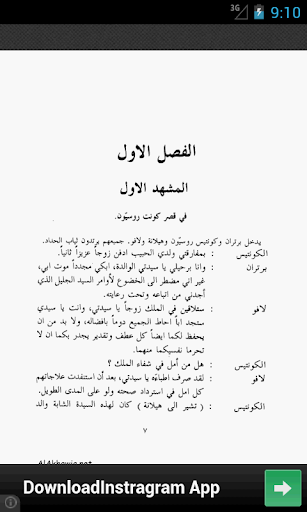 3G
9:10
الفصل الاول
المشهد الاول
في قصر كونت روسيّون.
يدخل برتران وكونتيس روسيّون وهيلانة ولافو. جميعهم يرتدون ثياب الحداد.
الكونتيس : بمفارقتي ولدي الحبيب ادفن زوجاً عزيزاً ثانياً.
برتران : وانا برحيلي يا سيدتي الوالدة، ابكي مجدداً موت ابي،
غير اني مضطر الى الخضوع لأوامر السيد الجليل الذي
أجدني من اتباعه وتحت رعايته.
لافو : ستلاقين في الملك زوجاً يا سيدتي، وانت يا سيدي
ستجد اباً احاط الجميع دوماً بأفضاله، ولا بد من ان
يحفظ لكما ايضاً كل عطف وتقدير يجدر بكما ان لا
تحرما نفسيكما منهما.
الكونتيس : هل من أمل في شفاء الملك ؟
لافو : لقد صرف اطباؤه يا سيدتي، بعد أن استنفدت علاجاتهم
كل امل في استرداد صحته ولو على المدى الطويل.
الكونتيس : ( تشير الى هيلانة ) كان لهذه السيدة الشابة والد
٧
DownloadInstragram App